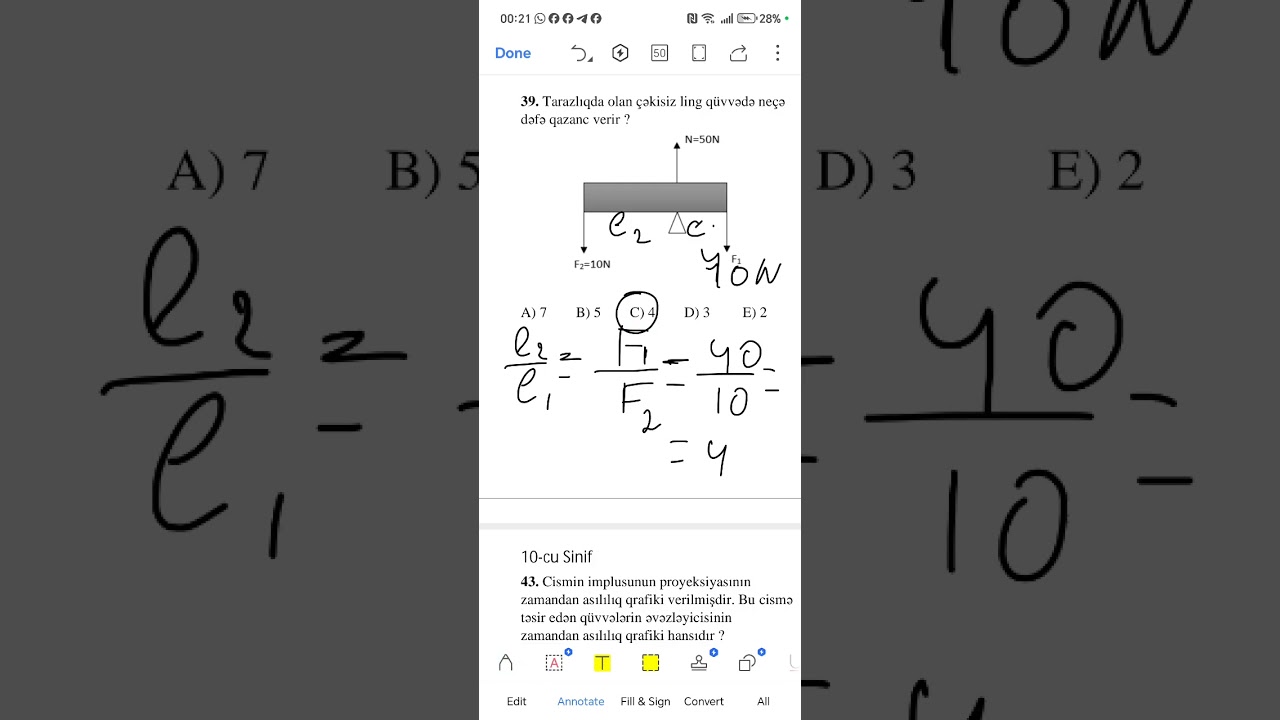 00:21 28%
Done 50
39. Tarazlıqda olan çəkisiz ling qüvvədə neçə
dəfə qazanc verir ?
N=50N
e2 e
F₂=10N F₁
40N
A) 7 B) 5 C) 4 D) 3 E) 2
e2/e1 = F1/F2 = 40/10 =
= 4
10-cu Sinif
43. Cismin implusunun proyeksiyasının
zamandan asılılıq qrafiki verilmişdir. Bu cismə
təsir edən qüvvələrin əvəzləyicisinin
zamandan asılılıq qrafiki hansıdır ?
Edit Annotate Fill & Sign Convert All